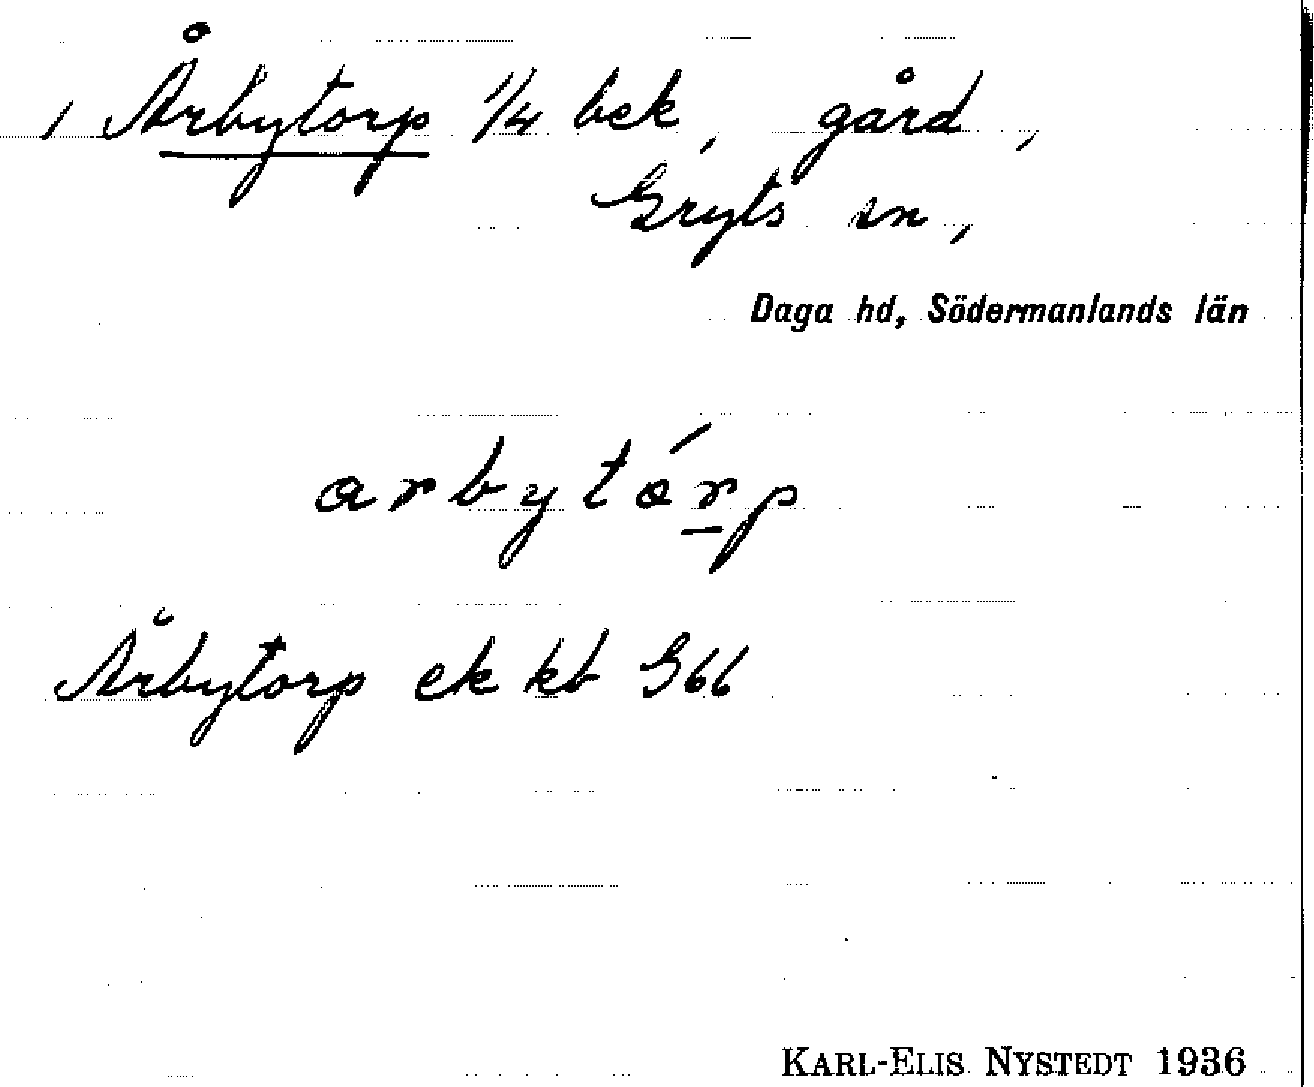 , Årbytorp 1/4 bek, gård,
Gryts sn,
Daga hd, Södermanlands län
arbytórp
Årbytorp ek kb G66
KARL-ELIS NYSTEDT 1936